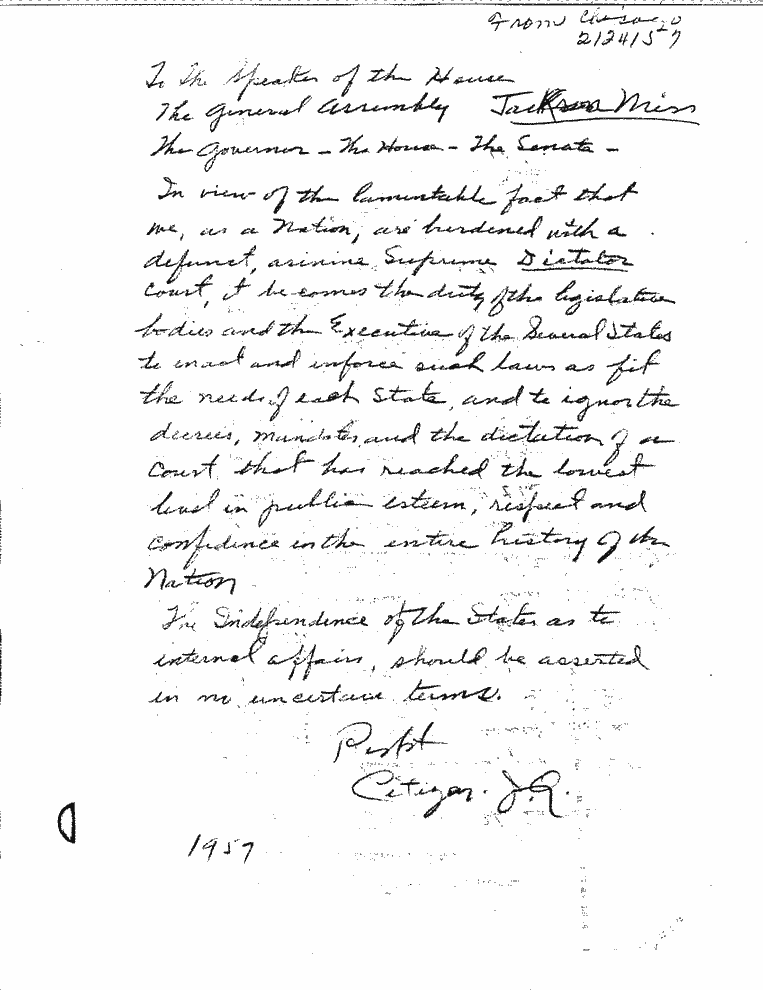 From Chicago
2/24/57
To The Speaker of the House
The General Assembly Jackson Miss
The Governor – The House – The Senate –
In view of the lamentable fact that
we, as a Nation, are burdened with a
defunct, asinine, Supreme Dictator
Court, it becomes the duty of the legislative
bodies and the Executive of the Several States
to enact and enforce such laws as fit
the needs of each State, and to ignor the
decrees, mandates, and the dictation of a
Court that has reached the lowest
level in public esteem, respect and
confidence in the entire history of the
Nation
The Independence of the States as to
internal affairs, should be asserted
in no uncertain terms.
Citizen. J.R.
1957